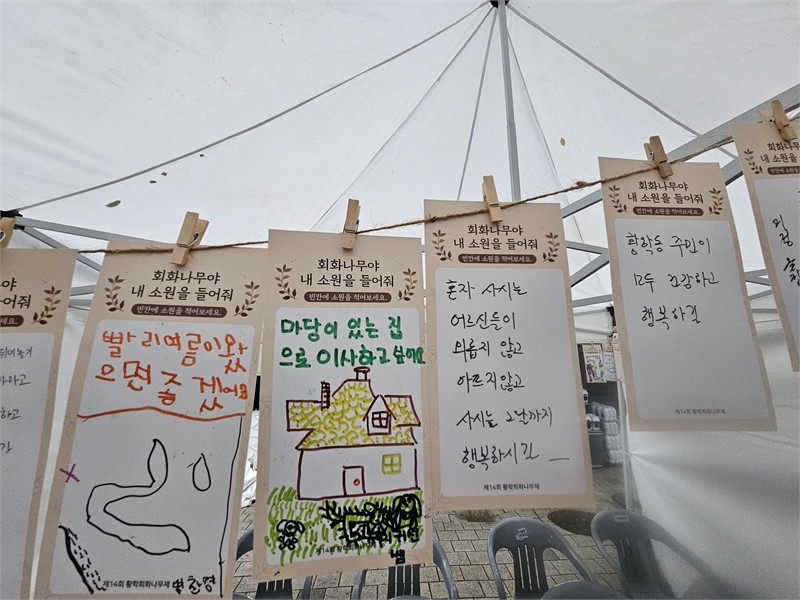 회화나무야
내 소원을 들어줘
빨리여름이왔
으면좋겠어요
제14회 황학회화나무제
회화나무야
내 소원을 들어줘
빈칸에 소원을 적어보세요.
마당이 있는 집
으로 이사하고 싶어요
회화나무야
내 소원을 들어줘
빈칸에 소원을 적어보세요.
혼자 사시는
어르신들이
외롭지 않고
아프지않고
사시는 그날까지
행복하시길
제14회 황학회화나무제
회화나무야
내 소원을 들어줘
빈칸에 소원을 적어보세요.
황학동 주민이
모두 건강하고
행복하길
제14회 황학회화나무제